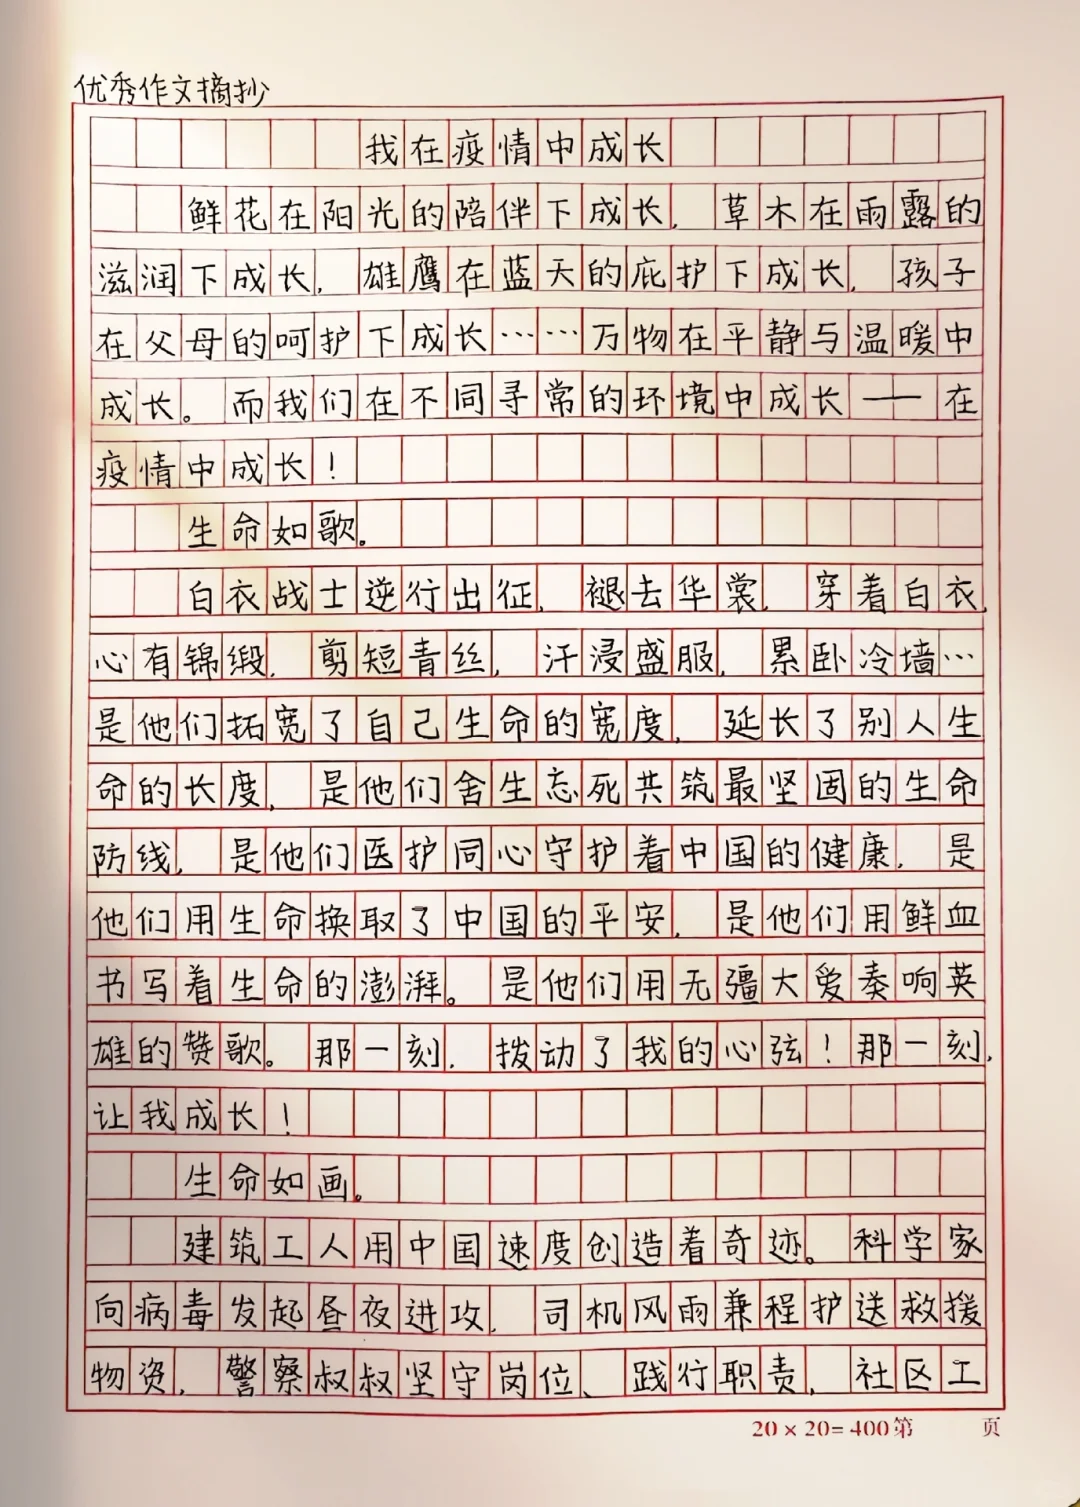 优秀作文摘抄
我在疫情中成长
鲜花在阳光的陪伴下成长，草木在雨露的
滋润下成长，雄鹰在蓝天的庇护下成长，孩子
在父母的呵护下成长……万物在平静与温暖中
成长。而我们在不同寻常的环境中成长——在
疫情中成长！
生命如歌。
白衣战士逆行出征，褪去华裳，穿着白衣，
心有锦缎，剪短青丝，汗浸盛服，累卧冷墙…
是他们拓宽了自己生命的宽度，延长了别人生
命的长度，是他们舍生忘死共筑最坚固的生命
防线，是他们医护同心守护着中国的健康，是
他们用生命换取了中国的平安，是他们用鲜血
书写着生命的澎湃。是他们用无疆大爱奏响英
雄的赞歌。那一刻，拨动了我的心弦！那一刻，
让我成长！
生命如画。
建筑工人用中国速度创造着奇迹。科学家
向病毒发起昼夜进攻，司机风雨兼程护送救援
物资，警察叔叔坚守岗位、践行职责，社区工
20×20=400第 页